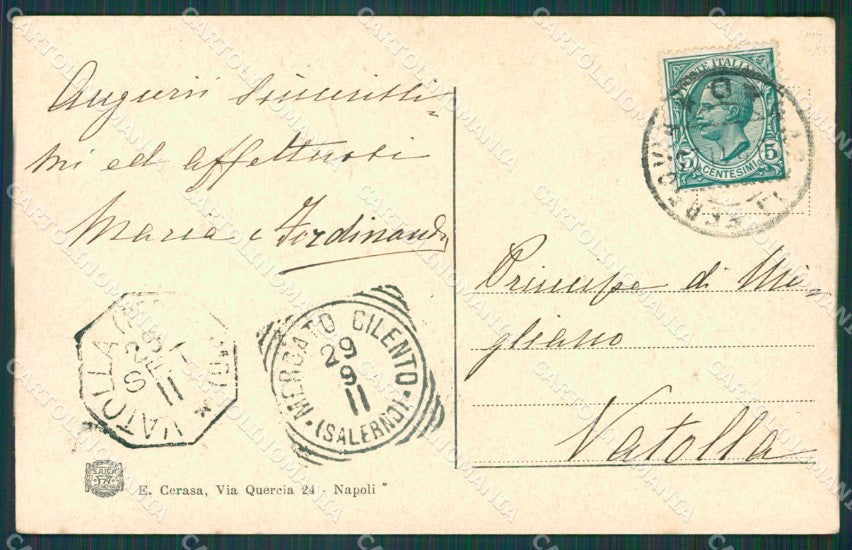 Auguri sincerissi-
mi ed affettuosi
Maria e Ferdinando
POSTE ITALIANE
5 5
CENTESIMI
Principe di Mi-
gliano
Vatolla
MERCATO CILENTO
29
9
11
(SALERNO)
VATOLLA
SET
11
E. Cerasa, Via Quercia 24 - Napoli
CARTOLINOMANIA